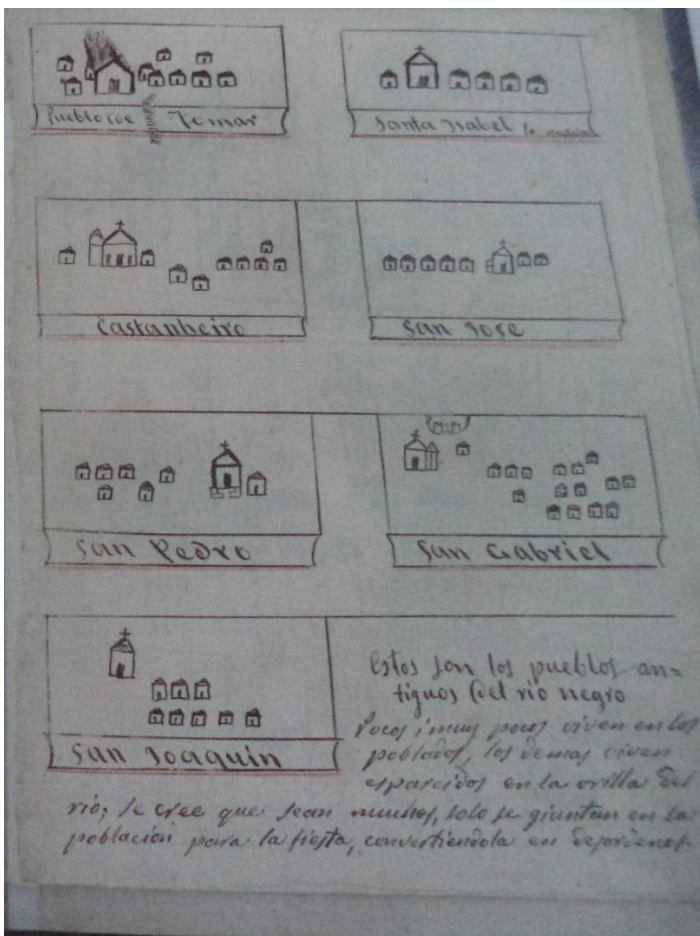 Pueblo de Tomar
Santa Isabel la nueva
Castanheiro
San Jose
San Pedro
San Gabriel
San Joaquin
Estos son los pueblos an=
tiguos del rio negro
Pocos i muy pocos viven en los
poblados, los demas viven
esparcidos en la orilla del
rio; se cree que sean muchos, solo se giuntan en la
población para la fiesta, convertiendola en desordenes